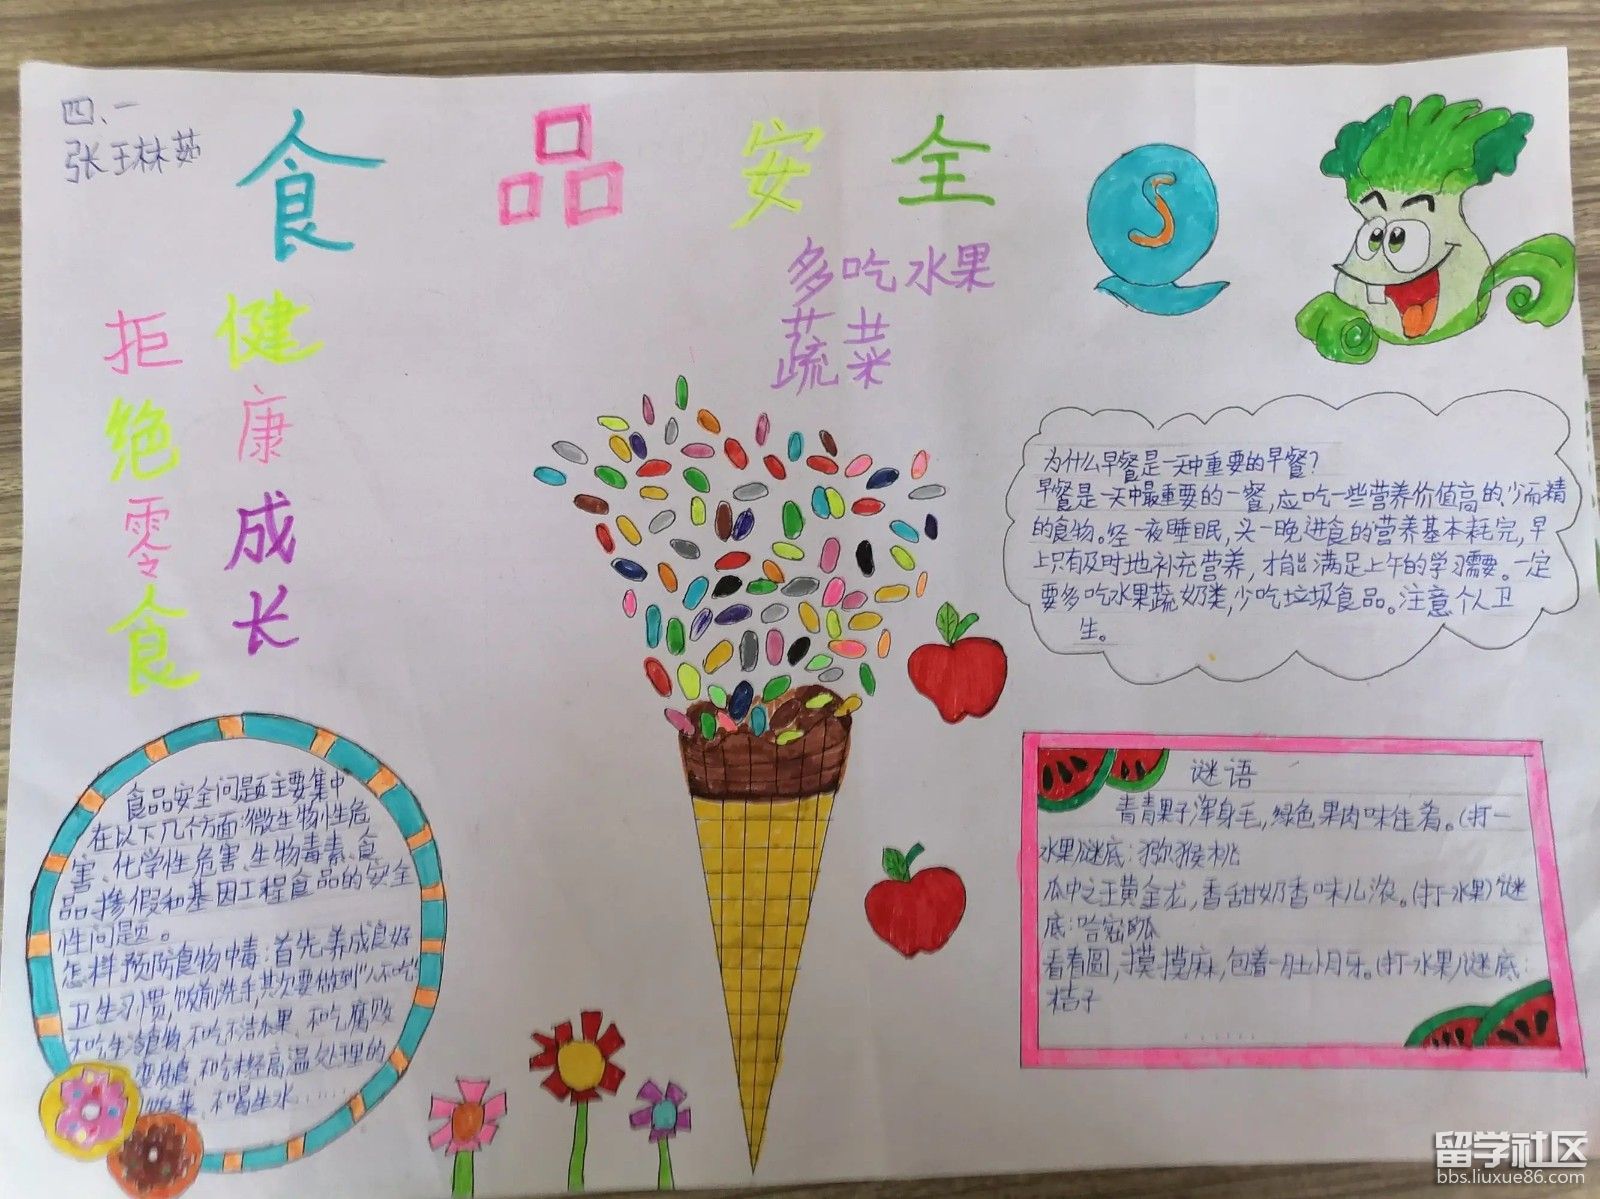 四、一
张王林茹
食品安全
多吃水果
蔬菜
S
拒绝零食
健康成长
为什么早餐是一天中重要的早餐?
早餐是一天中最重要的一餐,应吃一些营养价值高的、少而精
的食物。经一夜睡眠,头一晚进食的营养基本耗完,早
上只有及时地补充营养,才能满足上午的学习需要。一定
要多吃水果蔬奶类,少吃垃圾食品。注意个人卫
生。
食品安全问题主要集中
在以下几个方面:微生物性危
害、化学性危害、生物毒素、食
品掺假和基因工程食品的安全
性问题。
怎样预防食物中毒:首先,养成良好
卫生习惯,饭前洗手,其次要做到"八不吃"
不吃生冷食物、不吃不洁水果、不吃腐败
变质食、不吃未经高温处理的
饭菜、不喝生水……
谜语
青青果子浑身毛,绿色果肉味佳肴。(打一
水果)谜底:猕猴桃
瓜中之王黄金龙,香甜奶香味儿浓。(打一水果)谜
底:哈密瓜
看着圆,摸摸麻,包着一肚小月牙。(打一水果)谜底:
桔子
留学社区
bbs.liuxue86.com